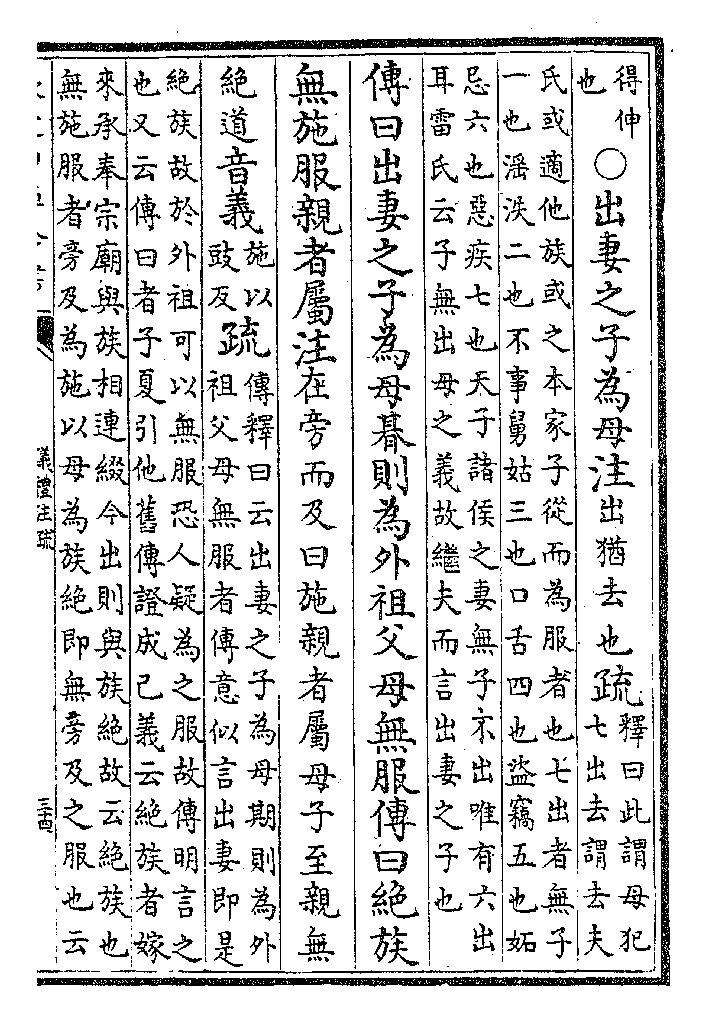 得伸
也
○出妻之子為母注出猶去也疏
釋曰此謂母犯
七出去謂去夫
氏或適他族或之本家子從而為服者也七出者無子
一也滛泆二也不事舅姑三也口舌四也盜竊五也妬
忌六也惡疾七也天子諸侯之妻無子不出唯有六出
耳雷氏云子無出母之義故繼夫而言出妻之子也
傳曰出妻之子為母朞則為外祖父母無服傳曰絶族
無施服親者屬注在旁而及曰施親者屬母子至親無
絶道音義
施以
豉反
疏
傳釋曰云出妻之子為母期則為外
祖父母無服者傳意似言出妻即是
絶族故於外祖可以無服恐人疑為之服故傳明言之
也又云傳曰者子夏引他舊傳證成已義云絶族者嫁
來承奉宗廟與族相連綴今出則與族絶故云絶族也
無施服者旁及為施以母為族絶即無旁及之服也云
儀禮注疏